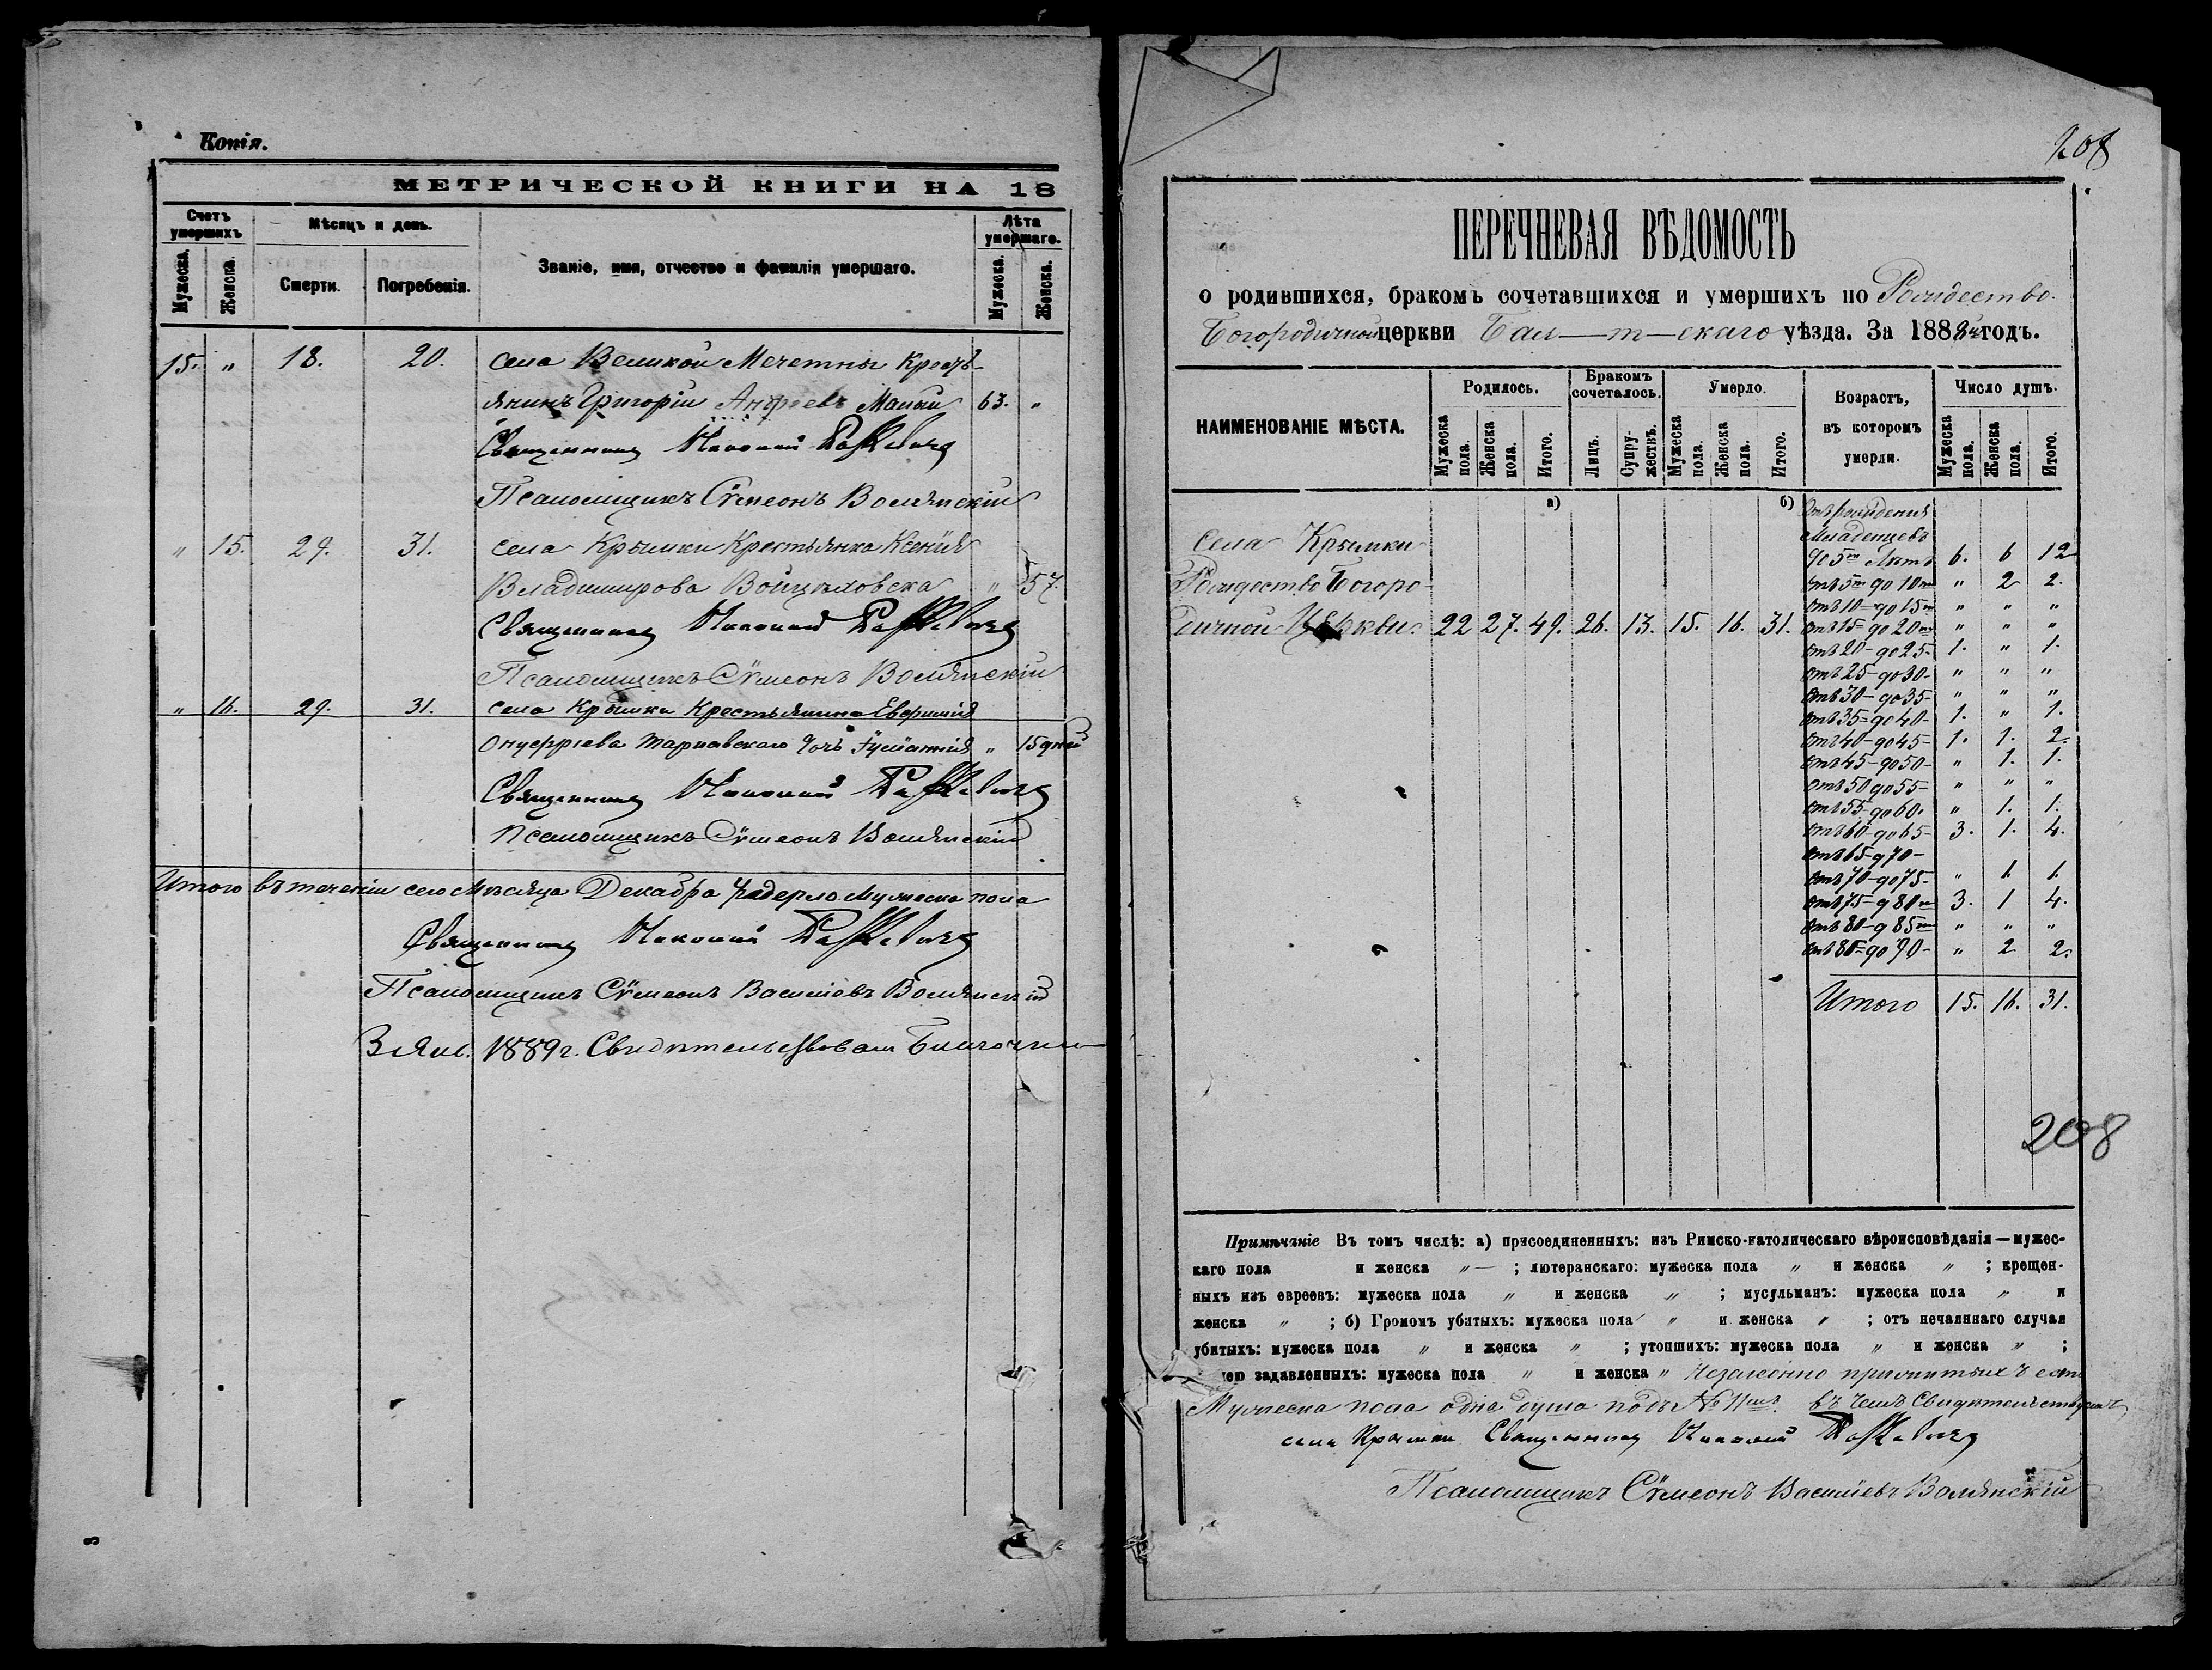 Копія.
МЕТРИЧЕСКОЙ КНИГИ НА 18
Счетъ умершихъ
Мѣсяцъ и день.
Званіе, имя, отчество и фамилія умершаго.
Лѣта умершаго.
Мужеска.
Женска.
Смерти.
Погребенія.
Мужеска.
Женска.
15. " 18. 20. села Великой Мечетны Кресть-
янинъ Григорій Андреевъ Малый 63. "
Священникъ Николай
Псаломщикъ Сѵмеонъ Волянскій
" 15. 29. 31. села Крымки Крестьянка Ксенія
Владимирова Войцѣховска " 57.
Священникъ Николай
Псаломщикъ Сѵмеонъ Волянскій
" 16. 29. 31. села Крымки Крестьянина Евфимія
Онуфріева Тарнавскаго дочь " 15 дней
Священникъ Николай
Псаломщикъ Сѵмеонъ Волянскій
Итого въ теченіи сего Мѣсяца Декабря Мужеска пола
Священникъ Николай
Псаломщикъ Сѵмеонъ Васильевъ Волянскій
3 Янв. 1889 г. Свидѣтельствовалъ Благочин
208
ПЕРЕЧНЕВАЯ ВѢДОМОСТЬ
о родившихся, бракомъ сочетавшихся и умершихъ по Рождество-
Богородичной церкви Бал—т—скаго уѣзда. За 1888й годъ.
НАИМЕНОВАНІЕ МѢСТА.
Родилось.
Бракомъ сочеталось.
Умерло.
Возрастъ, въ которомъ умерли.
Число душъ.
Мужеска пола.
Женска пола.
Итого.
Лицъ.
Супружествъ.
Мужеска пола.
Женска пола.
Итого.
Мужеска пола.
Женска пола.
Итого.
а) б)
Села Крымки
Рождество Богоро-
дичной Церкви. 22 27. 49. 26. 13. 15. 16. 31.
Отъ рожденія
Младенцевъ
до 5ти Лѣтъ 6. 6 12
отъ 5ти до 10ти " 2 2.
отъ 10 – до 15ти " " "
отъ 15 – до 20ти " " "
отъ 20 – до 25 – 1. " 1.
отъ 25 – до 30 – " " "
отъ 30 – до 35 – " " "
отъ 35 – до 40 – 1. " 1.
отъ 40 – до 45 – 1. 1. 2.
отъ 45 – до 50 – " 1. 1.
отъ 50 до 55 – " " "
отъ 55 – до 60. " 1. 1.
отъ 60 – до 65 – 3. 1. 4.
отъ 65 – д 70 –
отъ 70 – до 75 – " 1. 1.
отъ 75 – д 80ти 3. 1 4.
отъ 80 – д 85ти " " "
отъ 85 – до 90 – " 2 2.
Итого 15. 16. 31.
208
Примѣчаніе Въ томъ числѣ: а) присоединенныхъ: изъ Римско-католическаго вѣроисповѣданія — мужес-
каго пола и женска " — ; лютеранскаго: мужеска пола " и женска " ; крещен-
ныхъ изъ евреевъ: мужеска пола " и женска " ; мусульманъ: мужеска пола " и
женска " ; б) Громомъ убитыхъ: мужеска пола " и женска " ; отъ нечаяннаго случая
убитыхъ: мужеска пола " и женска " ; утопшихъ: мужеска пола " и женска " ;
задавленныхъ: мужеска пола " и женска " Незаконно прижитыхъ есть
Мужеска пола одна душа подъ № 11мъ. въ чемъ Свидѣтельствуемъ
села Крымки Священникъ Николай
Псаломщикъ Сѵмеонъ Васильевъ Волянскій